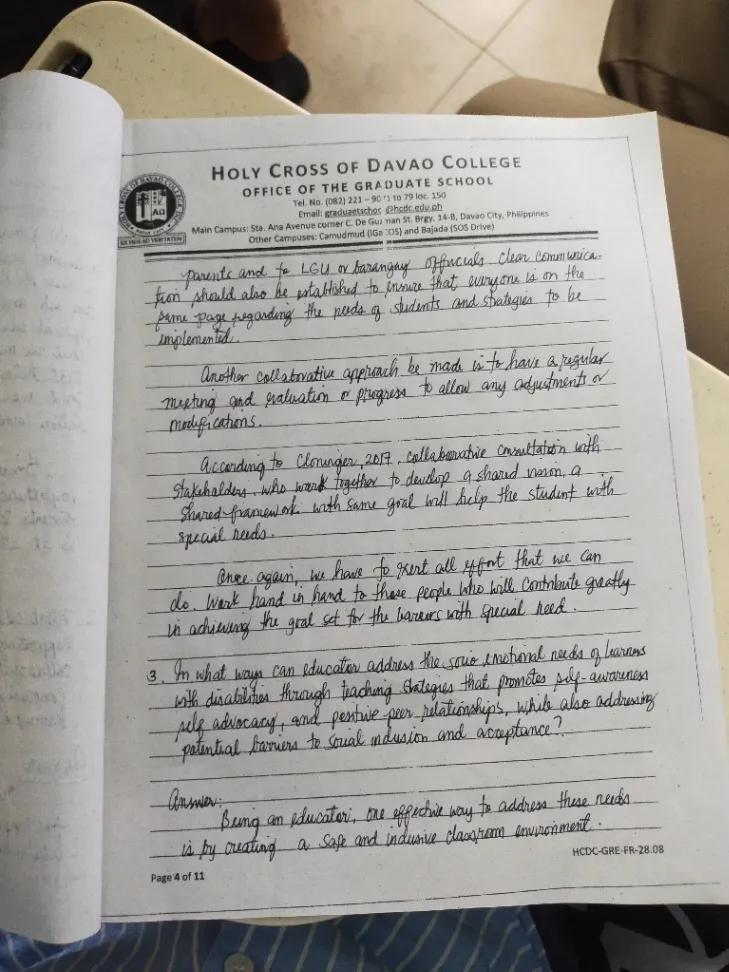 HOLY CROSS OF DAVAO COLLEGE
OFFICE OF THE GRADUATE SCHOOL
Tel. No. (082) 221 – 90 to 79 loc. 150
Email: @hcdc.edu.ph
Main Campus: Sta. Ana Avenue corner C. De Guzman St. Brgy. 14-B, Davao City, Philippines
Other Campuses: Camudmud (IGaCOS) and Bajada (SOS Drive)
parents and to LGU or barangay officials clear communica-
tion should also be established to ensure that, everyone is on the
same page regarding the needs of students and strategies to be
implemented.
Another collaborative approach be made is to have a regular
meeting and evaluation or progress to allow any adjustments or
modifications.
According to Cloninger, 2017, collaborative consultation with
stakeholders, who work together to develop a shared vision, a
shared framework with same goal will help the student with
special needs.
Once again, we have to exert all effort that we can
do. Work hand in hand to those people who will contribute greatly
in achieving the goal set for the learners with special need.
3. In what ways can educator address the socio emotional needs of learners
with disabilities through teaching strategies that promotes self-awareness
self advocacy, and positive peer relationships, while also addressing
potential barriers to social inclusion and acceptance?
Answer:
Being an educator, one effective way to address these needs
is by creating a safe and inclusive classroom environment.
HCDC-GRE-FR-28.08
Page 4 of 11